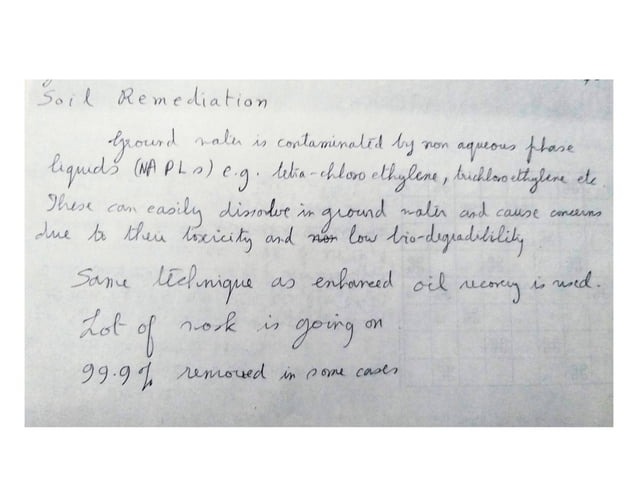 Soil Remediation
Ground water is contaminated by non aqueous phase
liquids (NAPLs) e.g. tetra-chloro ethylene, trichloroethylene etc
These can easily dissolve in ground water and cause concerns
due to their toxicity and non low bio-degradibility
Same technique as enhanced oil recovery is used.
Lot of work is going on
99.9% removed in some cases